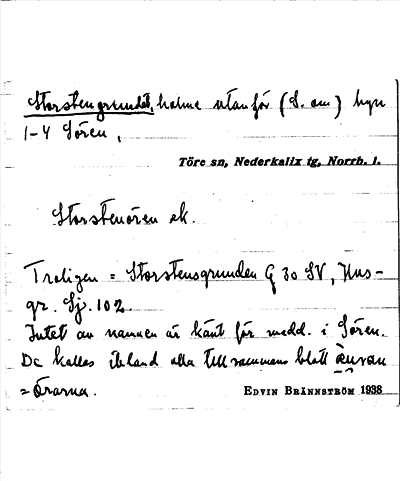 Storstengrundet, holme utanför (S. om) byn
1-4 Sören,
Töre sn, Nederkalix tg, Norrb. l.
Storstenören ek.
Troligen = Storstensgrunden G 30 SV, Hus-
gr. Sj. 102.
Intet av namnen är känt för medd. i Sören.
De kallas ibland alla tillsammans blott
= Örarna.
EDVIN BRÄNNSTRÖM 1938